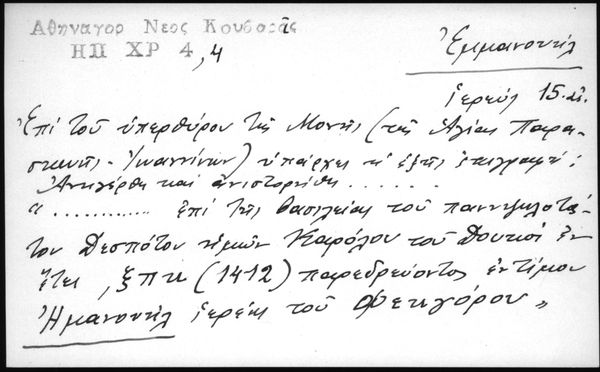 Αθηναγορ Νεος Κουβαρᾶς
ΗΠ ΧΡ 4,4
Ἐμμανουήλ
ἱερεύς 15. αἰ.
Ἐπί τοῦ ὑπερθύρου τῆς Μονῆς (τῆς Ἁγίας Παρα-
σκευῆς - Ἰωαννίνων) ὑπάρχει ἡ ἑξῆς ἐπιγραφή:
Ἀνηγέρθη καί ἀνιστορήθη .......
" ............ ἐπί τῆς βασιλείας τοῦ πανυψηλοτά-
του Δεσπότου ἡμῶν Καρόλου τοῦ Δουκός ἐν
ἔτει ,ϛπκ (1412) παρεδρεύοντος ἐντίμου
Ἠμανουήλ ἱερέως τοῦ Φετηγόρου "